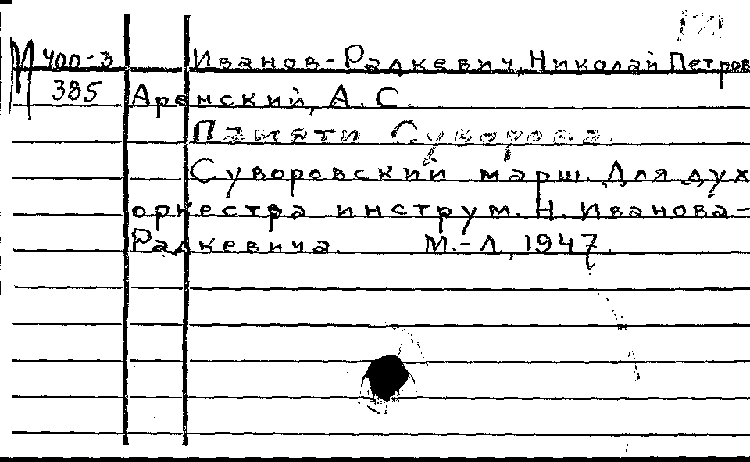 М ЧОП-3 Иванов-Радкевич, Николай Петров
385 Аренский, А. С.
Памяти Суворова.
Суворовский марш. Для дух.
оркестра инструм. Н. Иванова-
Радкевича. М.-Л., 1947.